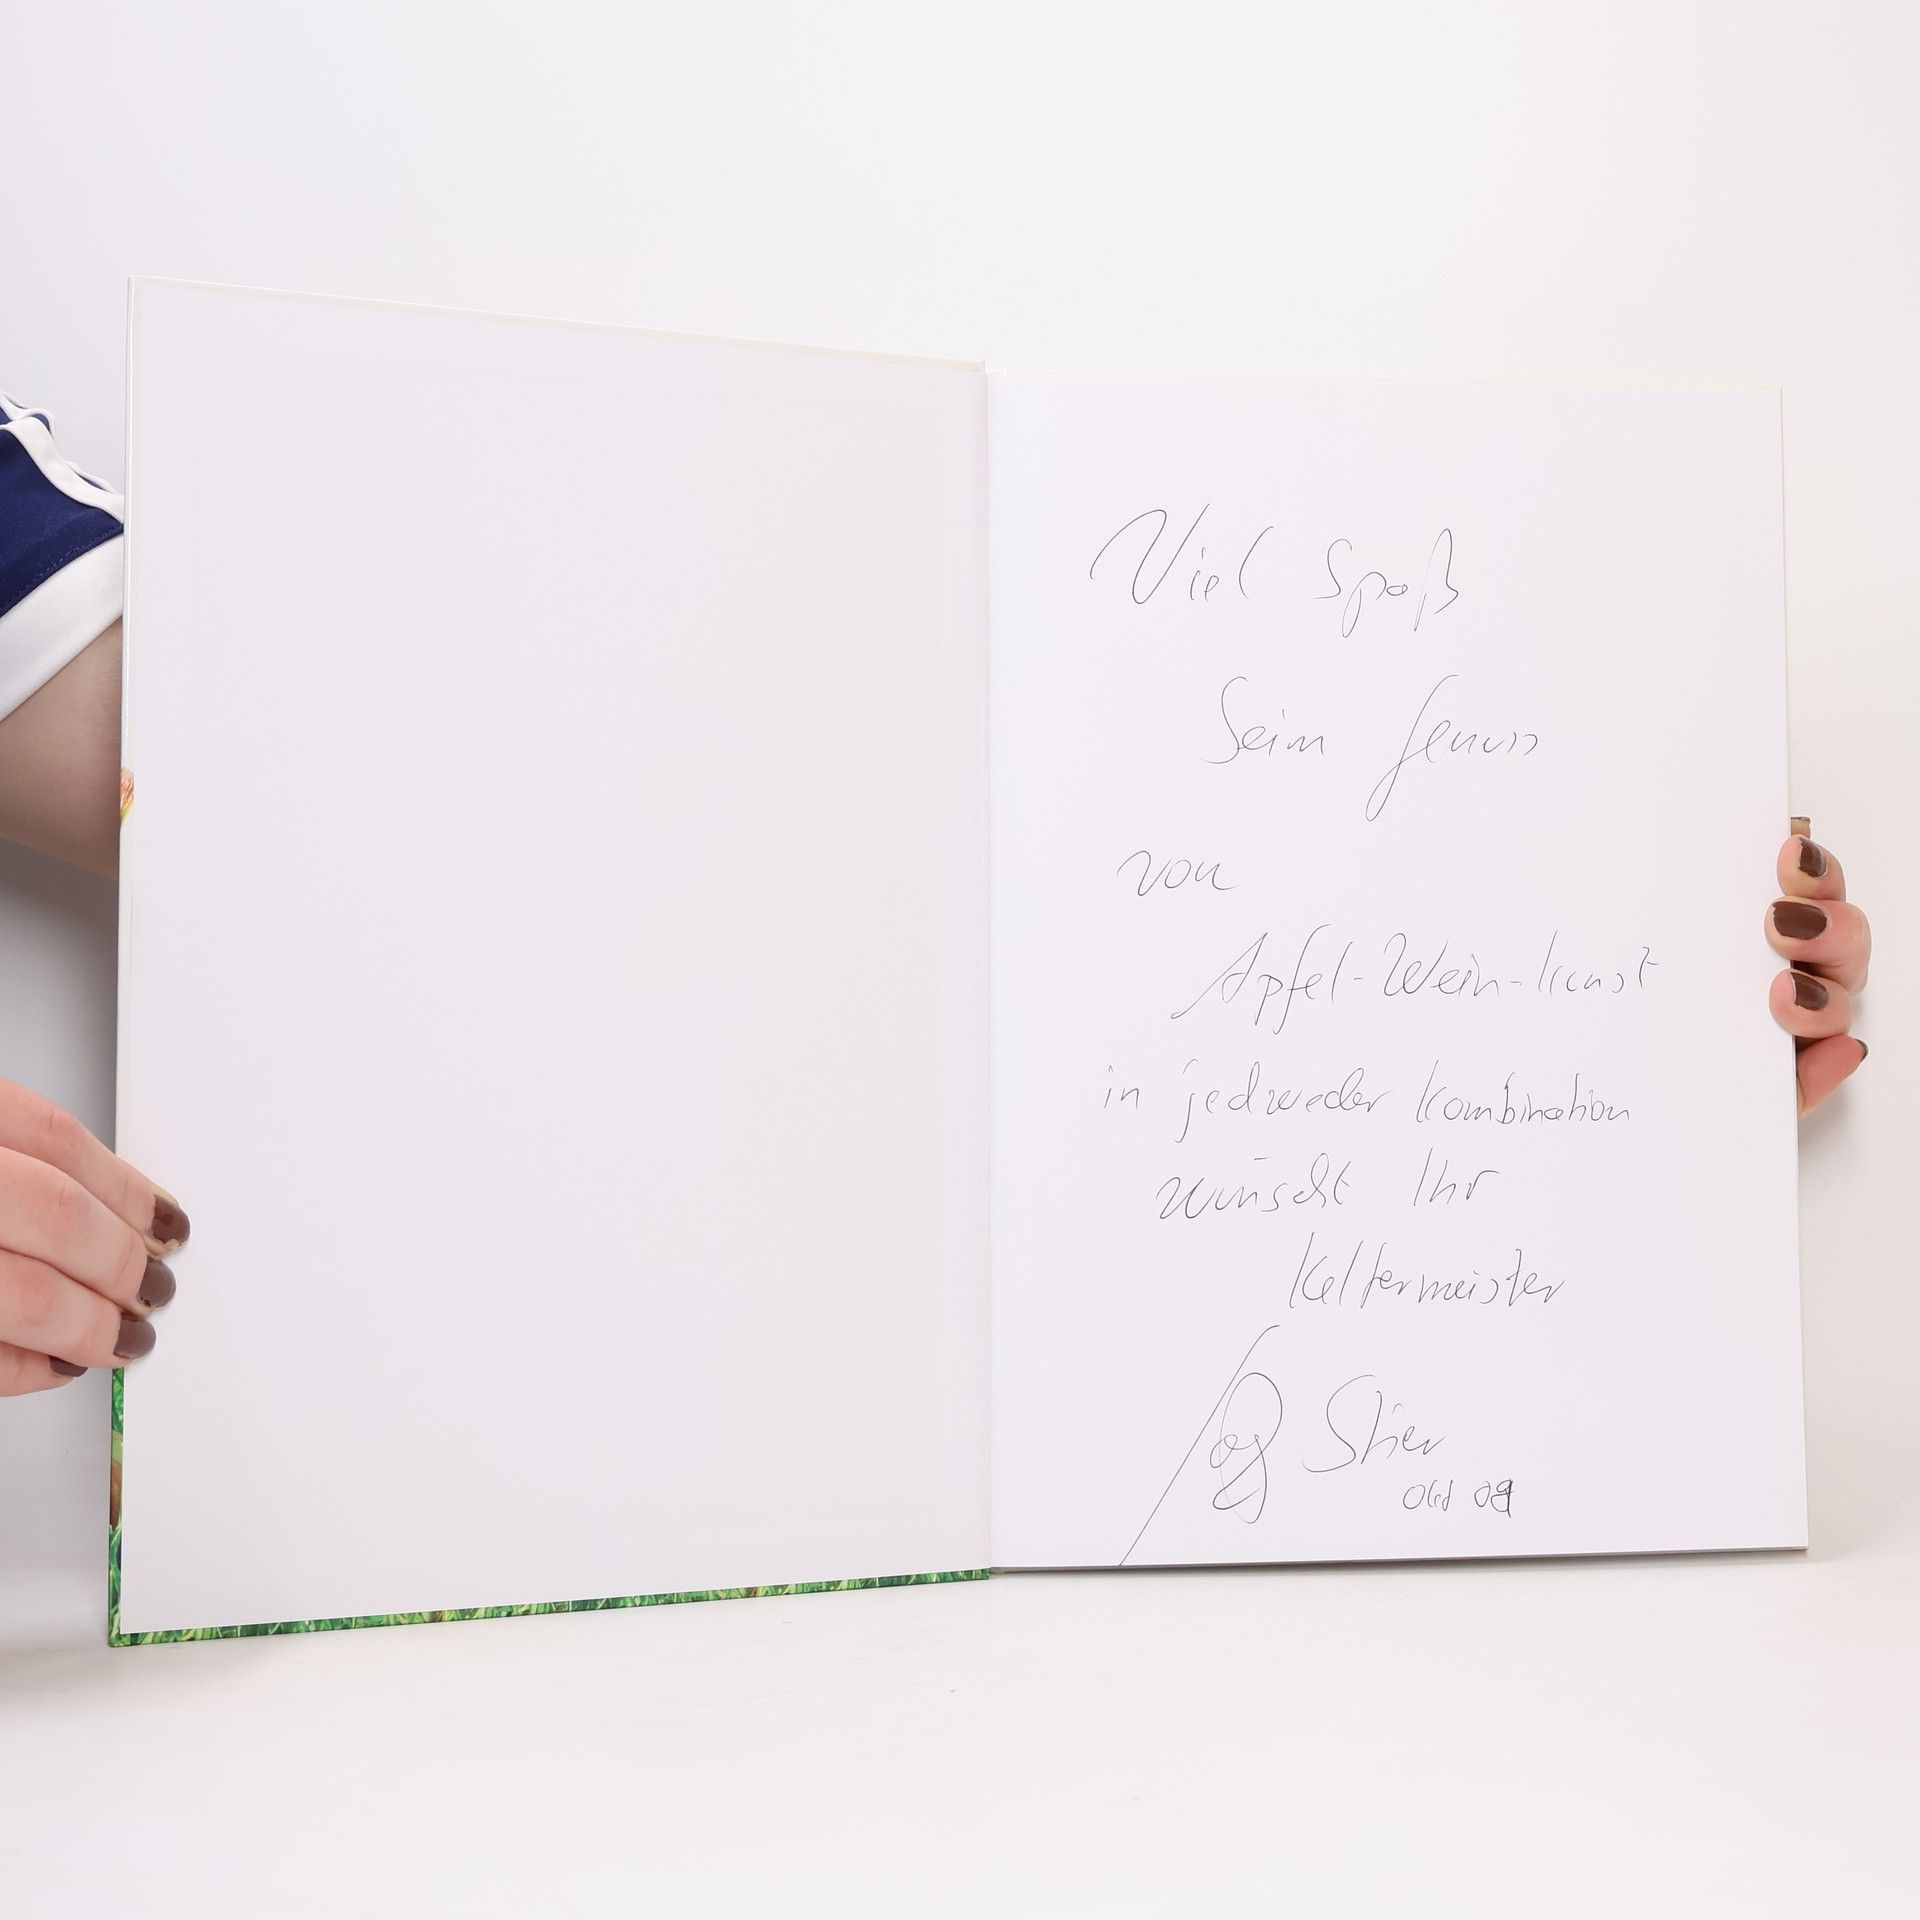 Viel Spaß
beim Genuss
von
Apfel-Wein-Kunst
in jedweder Kombination
wünscht Ihr
Keltermeister
Jörg Stier
Okt 09